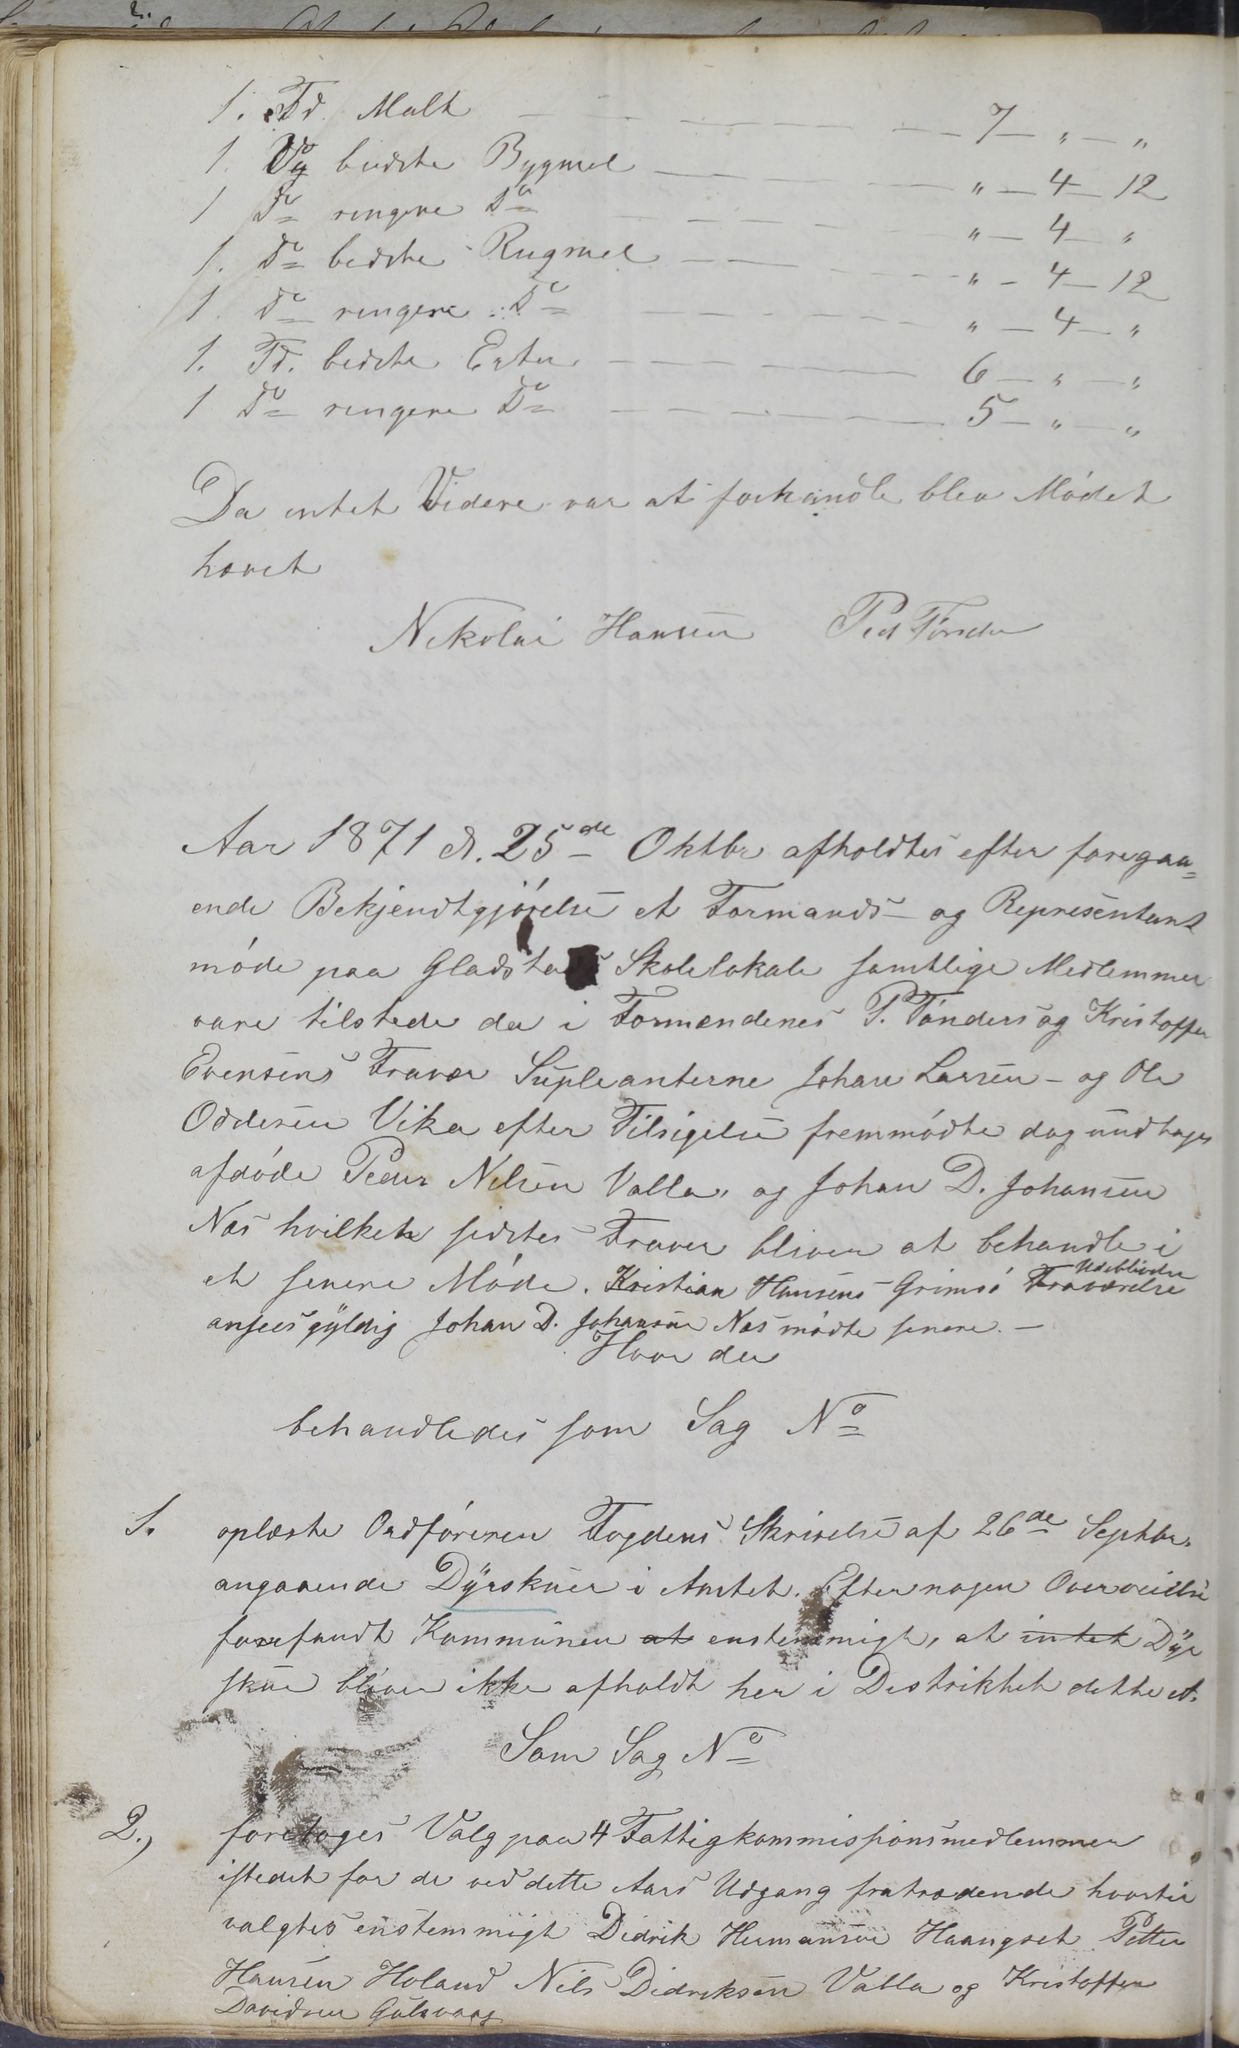 1. Td. Malt — 7 — " — "
1. Vg bedste Bygmel — " — 4 — 12
1 Do ringere Do — " — 4 — "
1. Do bedste Rugmel — " — 4 — 12
1. Do ringere Do — " — 4 — "
1. Td. bedste Erter — 6 — " — "
1 Do ringere Do — 5 — " — "
Da intet Videre var at forhandle blev Mødet
hævet
Nikolai Hansen Ped Tønder
Aar 1871 d. 25de Oktbr afholdtes efter foregaa=
ende Bekjendtgjørelse et Formands- og Representant
møde paa Gladstad Skolelokale samtlige Medlemmer
vare tilstede da i Formændenes P. Tønders og Kristoffer
Evensens Fravær Supleanterne Johan Larsen - og Ole
Oddesen Vika efter Tilsigelse fremmødte dog undtages
afdøde Peder Nilsen Valla, og Johan D. Johansen
Næs hvilken sidstes Fravær bliver at behandle i
et senere Møde. Kristian Hansens Grimsø Fraværelse Udeblivelse
ansees gyldig Johan D. Johansen Næs mødte senere. —
Hvor der
behandledes som Sag No
1. oplæste Ordføreren Fogdens Skrivelse af 26de Septbr.
angaaende Dyrskuer i Amtet. Efter nogen Overveielse
forefandt Kommunen at enstemmigt, at intet Dyr
skue bliver ikke afholdt her i Distriktet dette A.
Som Sag No
2.) foretoges Valg paa 4 Fattigkommissionsmedlemmer
istedet for de ved dette Aars Udgang fratrædende hvortil
valgtes enstemmigt Didrik Hermansen Haangset Petter
Hansen Holand Nils Didriksen Valla og Kristoffer
Davidsen Gulsvaag